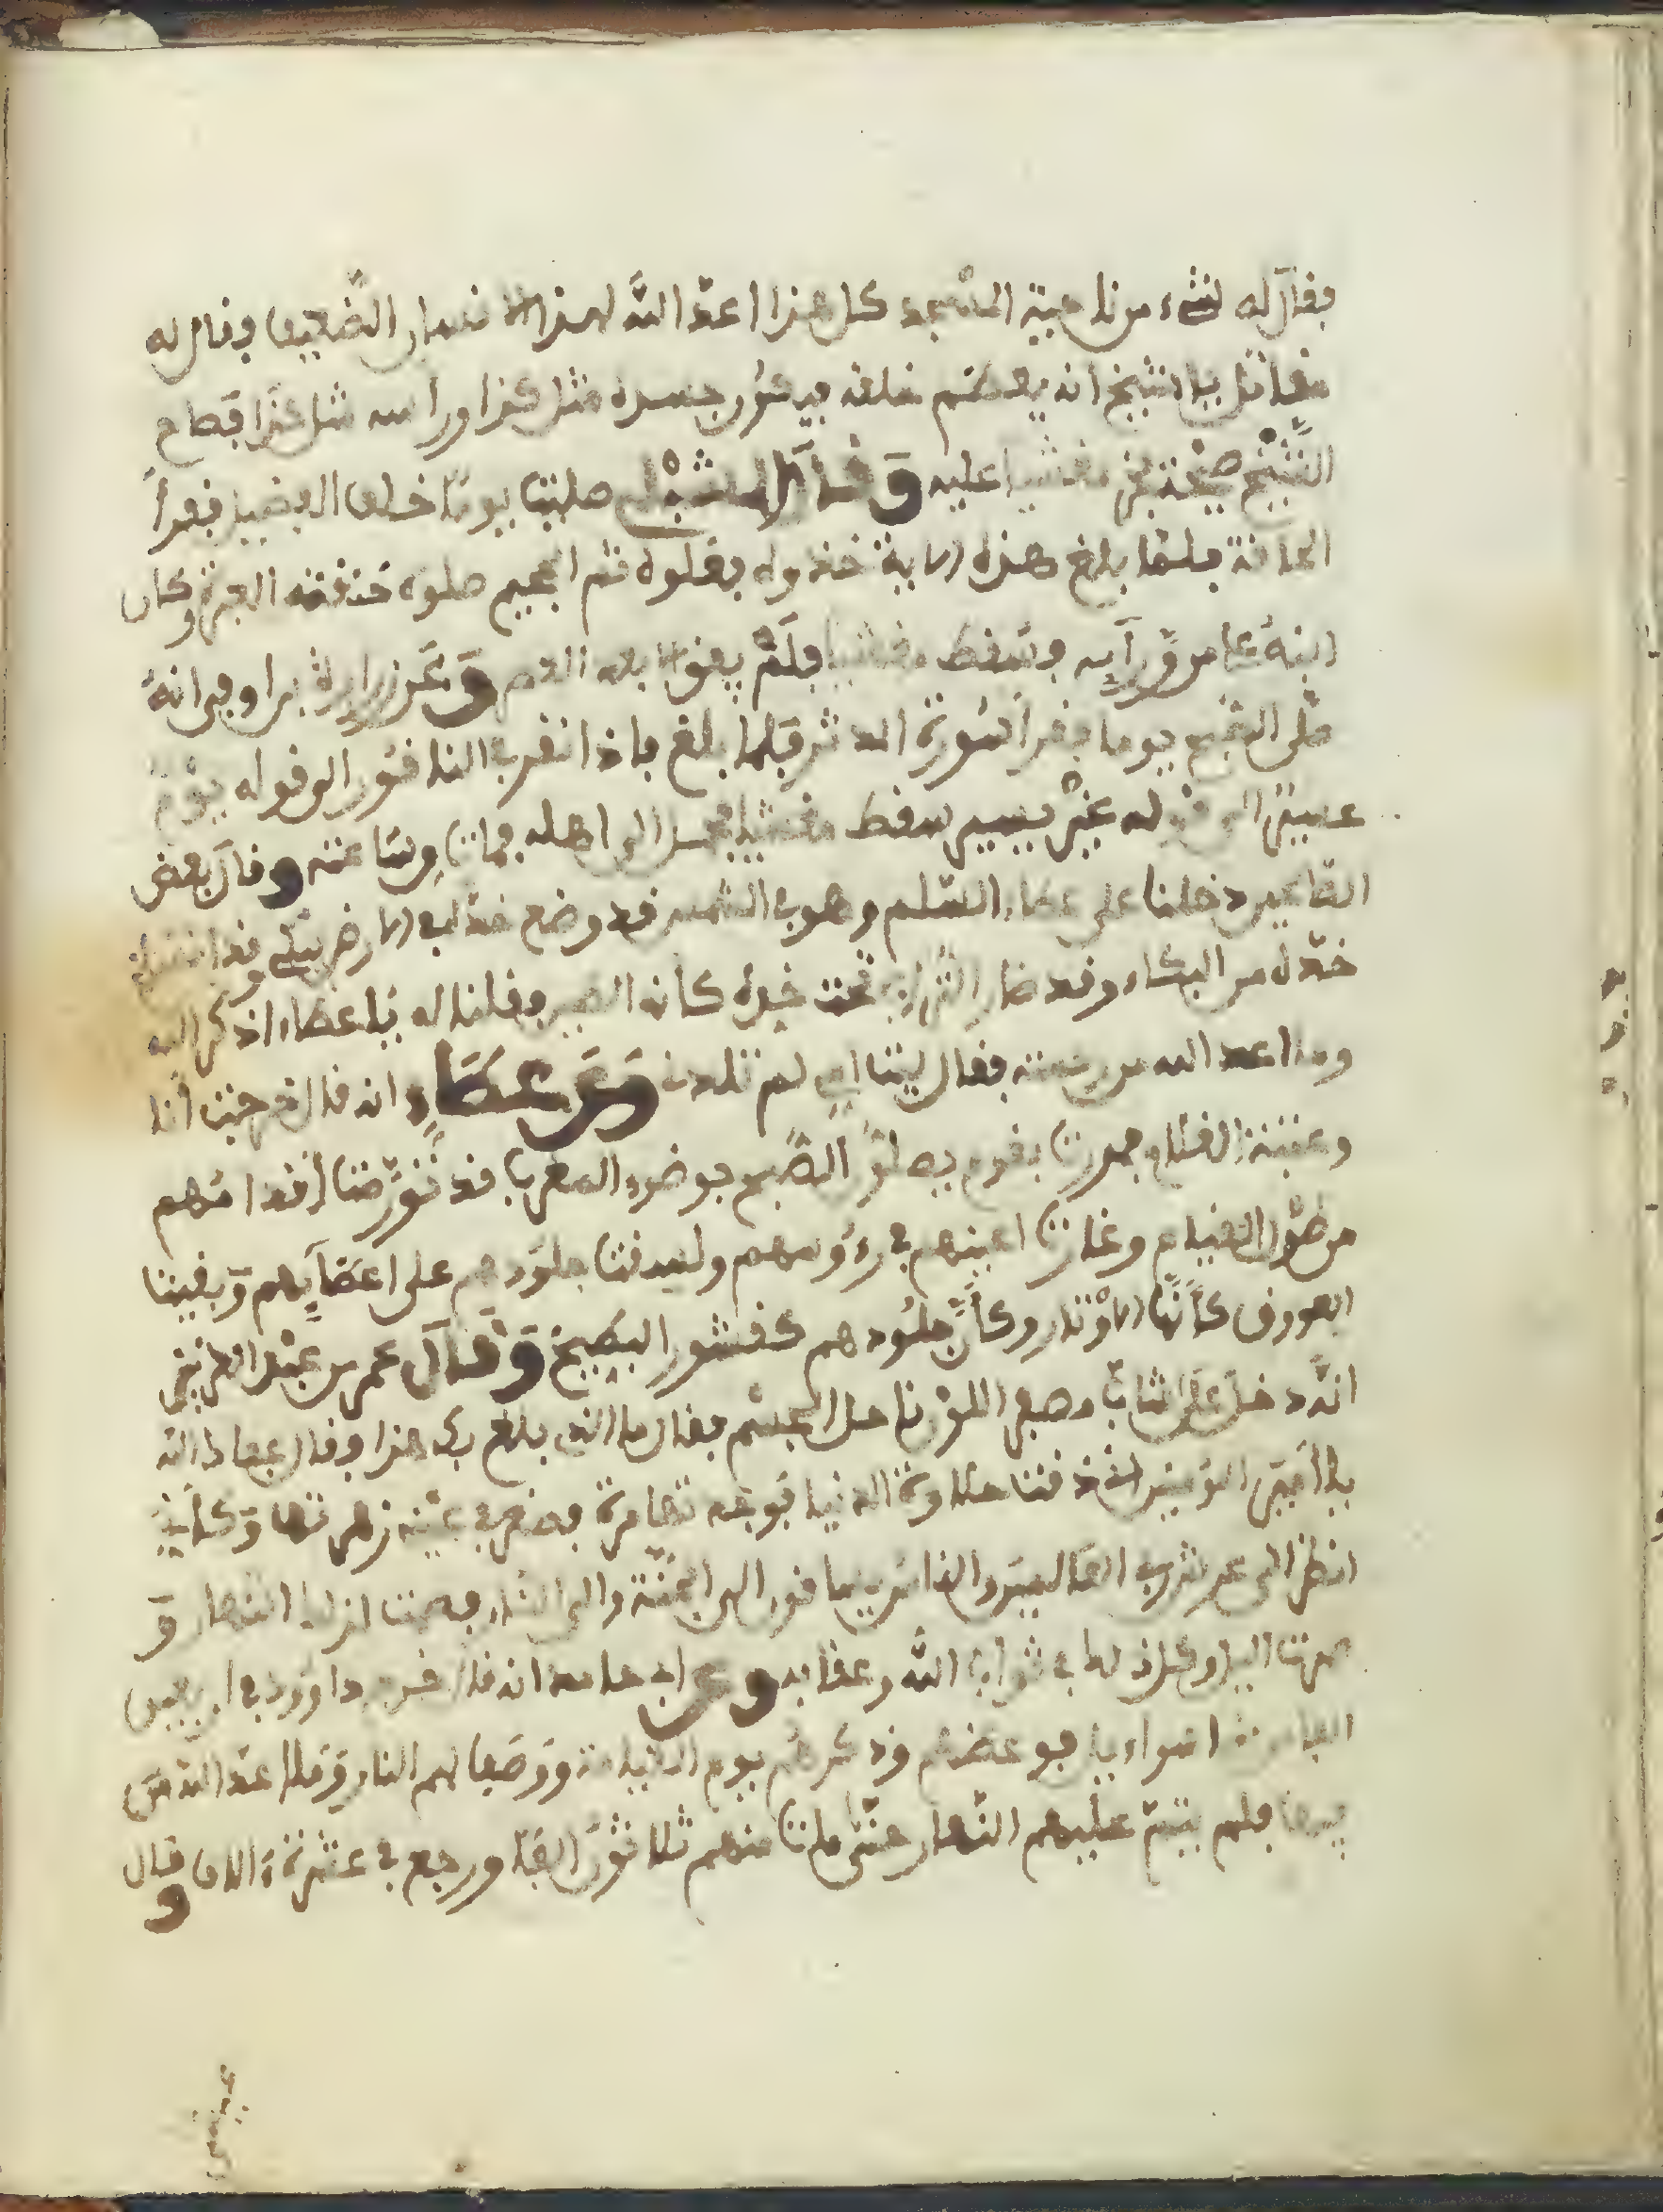 فقال له لشيء من ناحية المسجد كل هذا اعدّ الله لهذا الانسان الضعيف وقال له
مقاتل يا شيخ انه يعظم خلقه فيكون جسده مثل كذا وراسه مثل كذا فصاح
الشَّيخ صيحة فخر مغشيا عليه وقال الشبلي صلينا يومًا خلف الفضيل فقرأ
الحاقة فلما بلغ هذه الاية خذوه فغلوه ثم الجحيم صلوه خنقته العبرة وكان
ابنه عليا من ورآيه وسقط مغشيا فلم يفق الا بعد العصر وعن زرارة بن اوفى انه
صلى الصّبح يوما فقرأ سورة المدثر فلما بلغ فاذا نقر في الناقور الى قوله يوم
عسير الى قوله غير يسير سقط مغشيا فحمل الى اهله فمات من ساعته وقال بعض
الصالحين دخلنا على عطاء السّلمي وهو في الشمس قد وضع خدّه في الارض يبكي وقد
خدّه من البكاء وقد صار التراب تحت خده كانه العجين فقلنا له يا عطاء اذكر الله
وما اعد الله من رحمته فقال ليت امي لم تلدني وعن عطاء انه قال خرجت انا
وعتبة الغلام فمررت بقوم يصلون الصّبح بوضوء المغرب قد تورّمت اقدامهم
من طول القيام وغارت اعينهم في رؤوسهم ولصقت جلودهم على اعضآيهم وبقيت
العروق كأنها الاوتار وكأن جلودهم كقشور البطيخ وقال عمر بن عبد العزيز
انه دخل علي شاب مصفر اللون ناحل الجسم فقال ما الذي بلغ بك هذا فقال
يا أمير المومنين ذقت حلاوة الدنيا فوجدتها مرة فصغر في عيني زهرتها وكأني
انظر الى عرش رب العالمين والناس يساقون الى الجنة والى النار فصمت لذلك النهار و
سهرت الليل وكل ذلك في ثواب الله وعقابه وعن ابي حامد انه قال خرج داوود في اربعين
الفا من فوعظهم وذكرهم يوم القيامة ووصف لهم النار وما اعد الله من
فيها فلم يتم عليهم النهار حتّى مات منهم ثلاثون الفا ورجع في عشرة الاف وقال